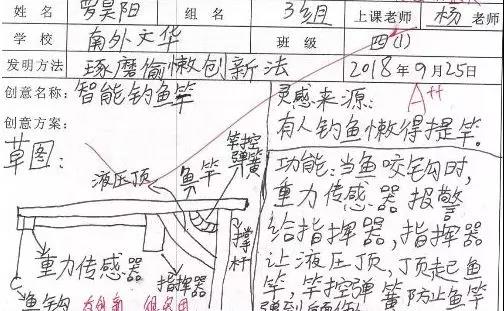 姓名 罗昊阳 组名 3组 上课老师 杨老师
学校 南外文华 班级 四(1)
发明方法 琢磨偷懒创新法 2018年9月25日
创意名称：智能钓鱼竿
创意方案：
草图：
液压顶
鱼竿
竿控弹簧
撑杆
重力传感器
指挥器
鱼钩
灵感来源： A++
有人钓鱼懒得提竿。
功能：当鱼咬钩时，
重力传感器报警
给指挥器，指挥器
让液压顶，顶起鱼
竿，竿控弹簧防止鱼竿
弹到